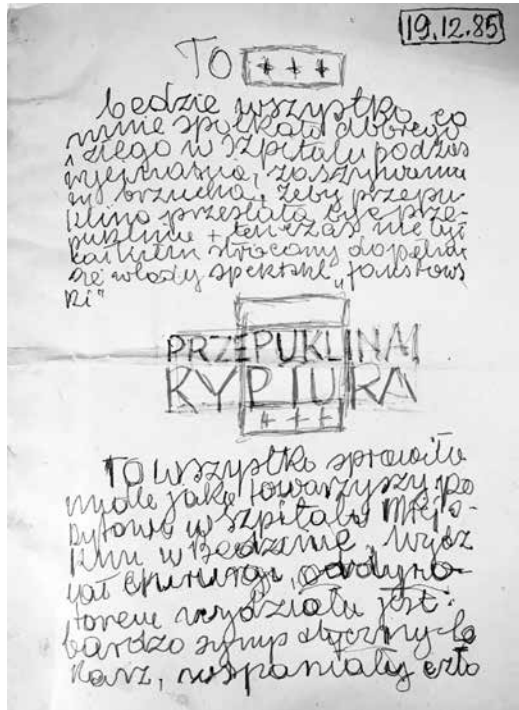 19.12.85
TO + + +
będzie wszystko co
mnie spotkało dobrego
i złego w szpitalu podczas
wycinania, zaszywania
brzucha, żeby przepu-
klina przestała być prze-
pukliną + ten czas nie był
stracony dopełnia
się władzy spektakl „
ki"
PRZEPUKLINA
KYPTURA
+ + +
TO wszystko sprawiło
jakie towarzyszy po
bytowi w Szpitalu Miejs
kim w Będzinie, wydz
iał chirurgi, ordyna-
torem wydziału jest
bardzo sympatyczny le
karz, wspaniały czło